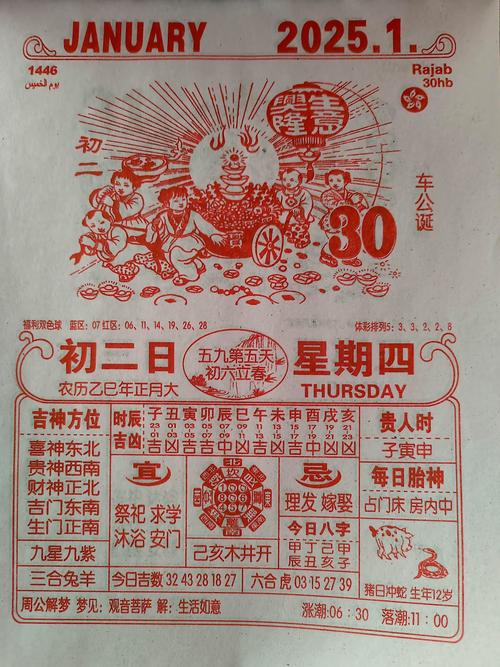 JANUARY 2025.1.
1446 Rajab
يوم الخميس 30hb
生意
興隆
初二
车公诞
30
福利双色球 蓝区:07 红区:06、11、14、19、26、28 体彩排列5:3、3、2、2、8
初二日 五九第五天 星期四
初六立春
农历乙巳年正月大 THURSDAY
吉神方位
喜神东北
贵神西南
财神正北
吉门东南
生门正南
九星九紫
三合兔羊
时辰吉凶
子 丑 寅 卯 辰 巳 午 未 申 酉 戌 亥
23 01 03 05 07 09 11 13 15 17 19 21
01 03 05 07 09 11 13 15 17 19 21 23
贵人时
子寅申
宜
祭祀 求学
沐浴 安门
己亥木井开
忌
理发 嫁娶
今日八字
甲丁己甲
辰丑亥子
每日胎神
占门床 房内中
猪日冲蛇 生年12岁
今日吉数 32 43 28 18 27 六合 虎 03 15 27 39
周公解梦 梦见:观音菩萨 解:生活如意
涨潮:06:30 落潮:11:00